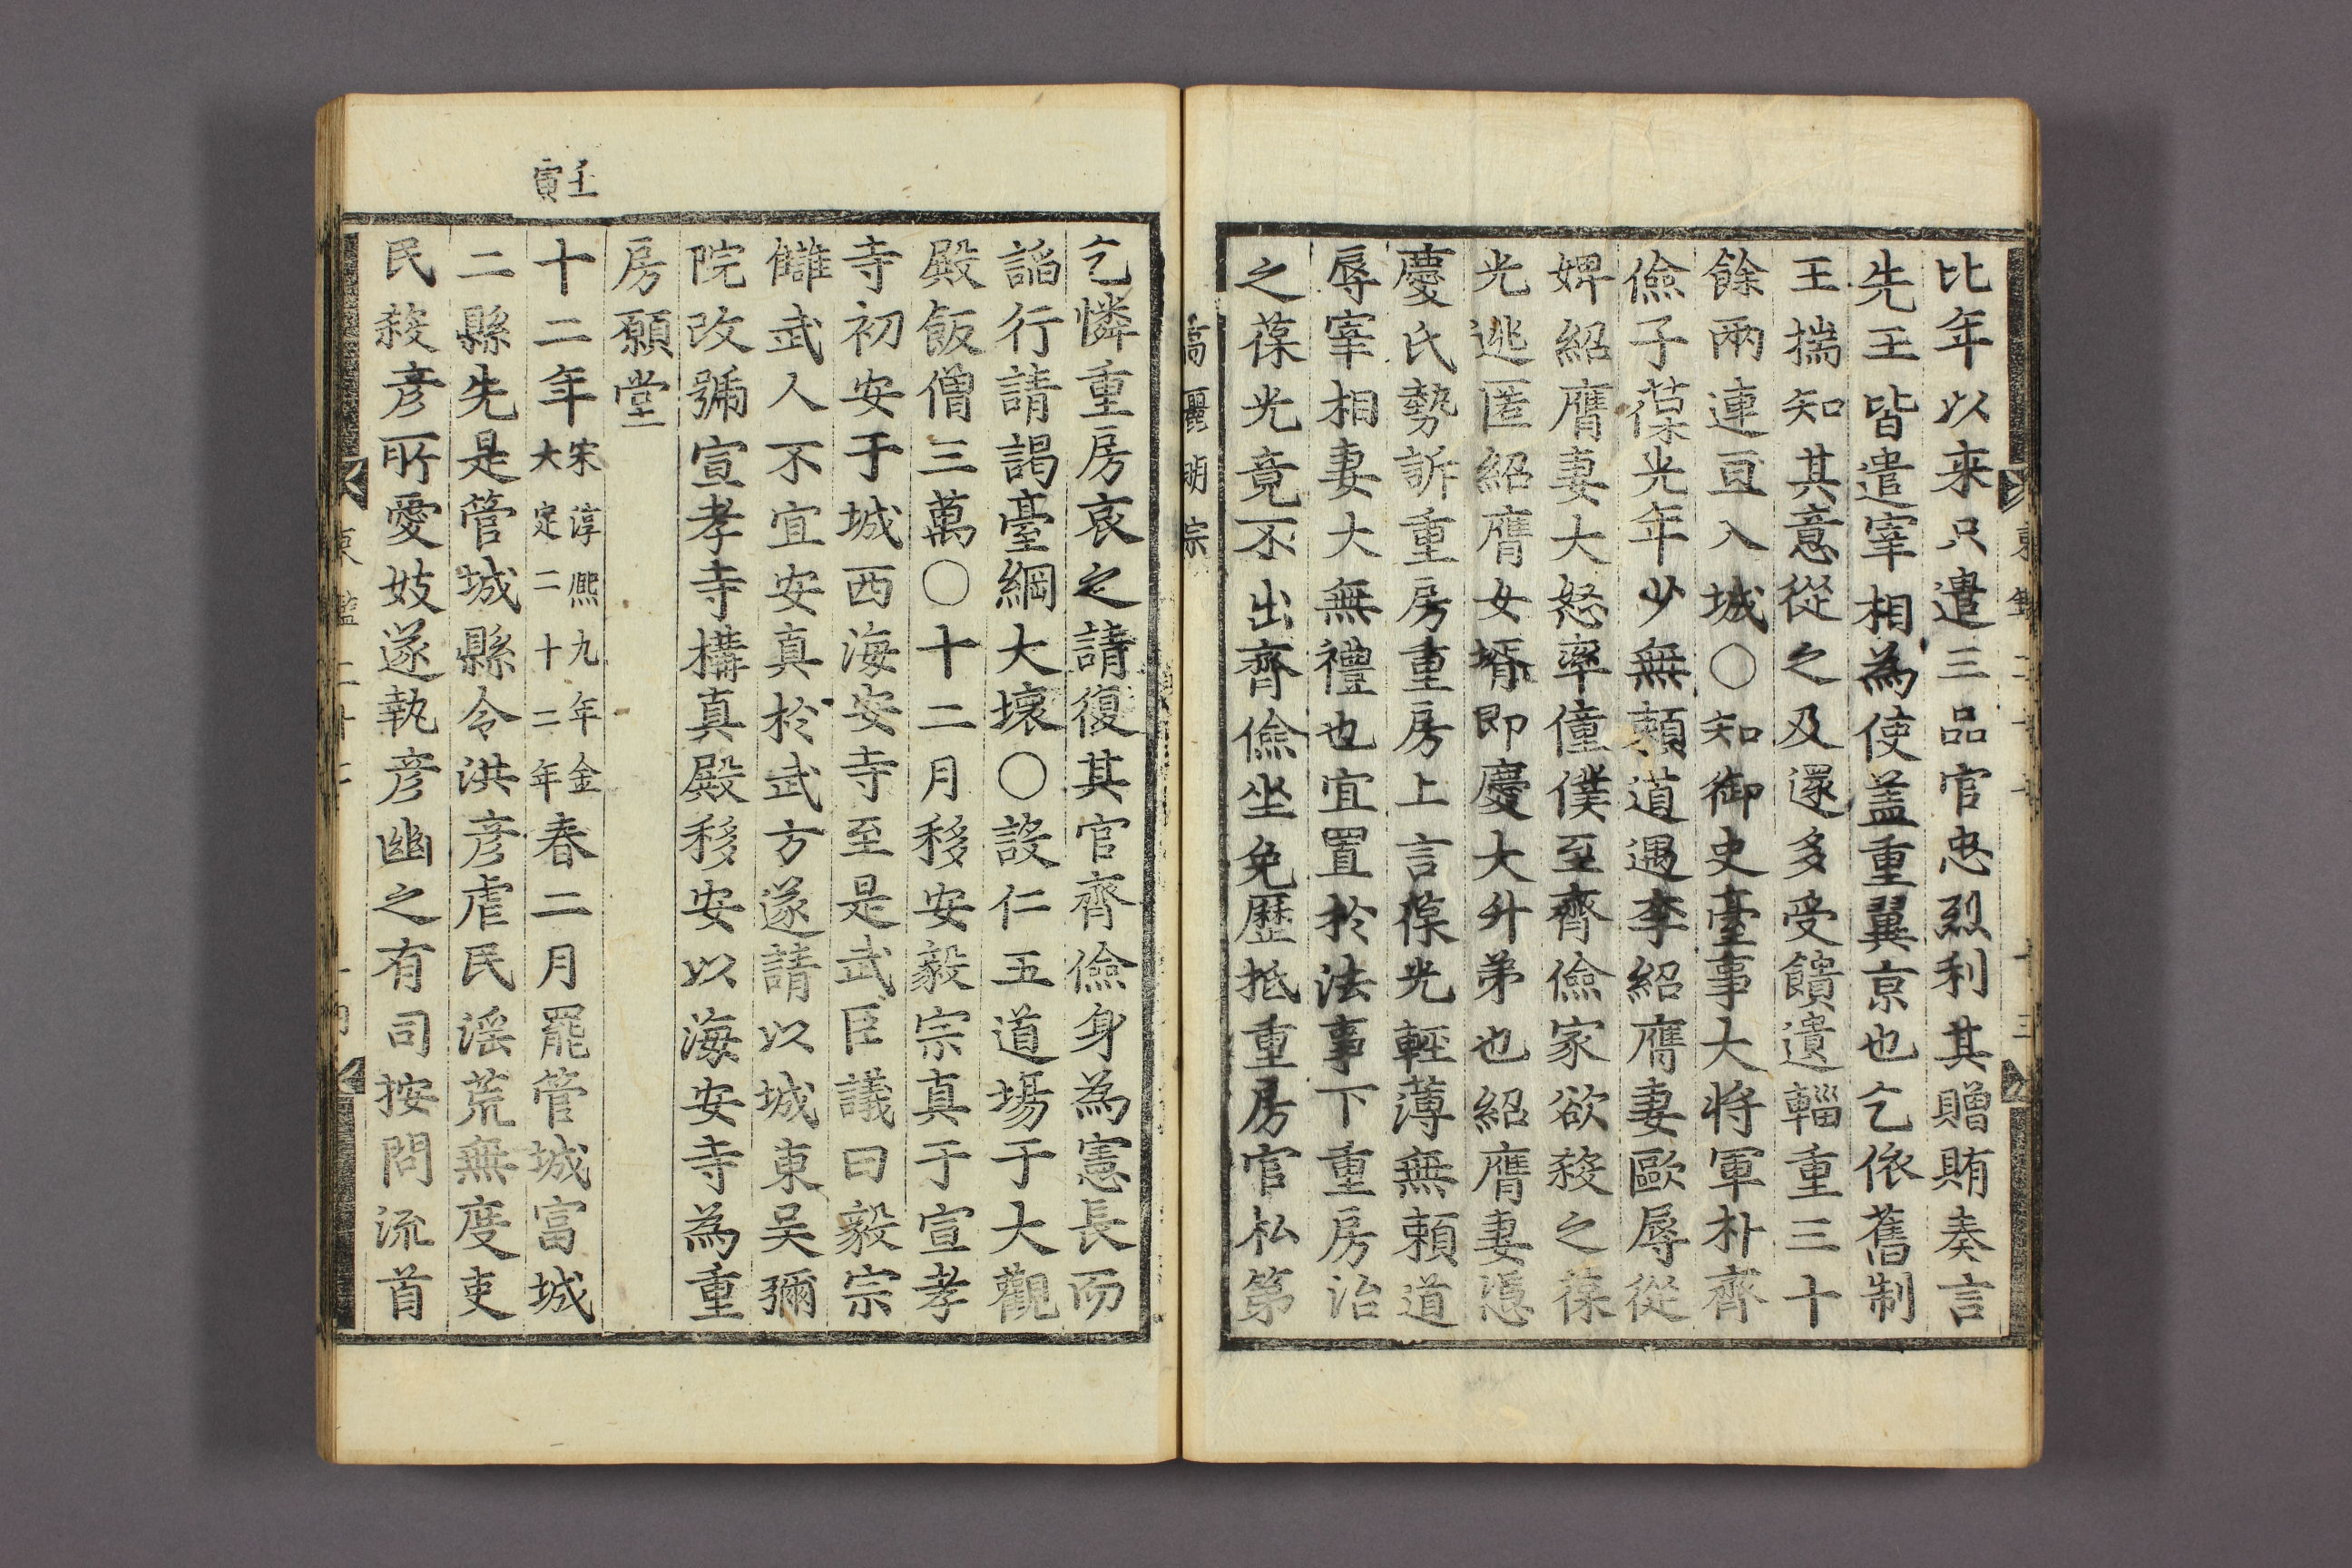 比年以来只遣三品官忠烈利其贈賄奏言
先王皆遣宰相為使盖重翼京也乞依舊制
王揣知其意從之及還多受饋遺輜重三十
餘兩連亘入城○知御史臺事大将軍朴齊
儉子葆光年少無頼道遇李紹膺妻歐辱從
婢紹膺妻大怒率僮僕至齊儉家欲殺之葆
光逃匿紹膺女壻即慶大升弟也紹膺妻憑
慶氏勢訴重房重房上言葆光輕薄無頼道
辱宰相妻大無禮也宜置於法事下重房治
之葆光竟不出齊儉坐免歷抵重房官私第
高麗明宗
乞憐重房哀之請復其官齊儉身為憲長而
諂行請謁臺綱大壞○設仁王道場于大觀
殿飯僧三萬○十二月移安毅宗真于宣孝
寺初安于城西海安寺至是武臣議曰毅宗
讎武人不宜安真於武方遂請以城東吳彌
院改號宣孝寺構真殿移安以海安寺為重
房願堂
壬寅
十二年宋淳熈九年金大定二十二年春二月罷管城富城
二縣先是管城縣令洪彦虐民滛荒無度吏
民殺彦所愛妓遂執彦幽之有司按問流首